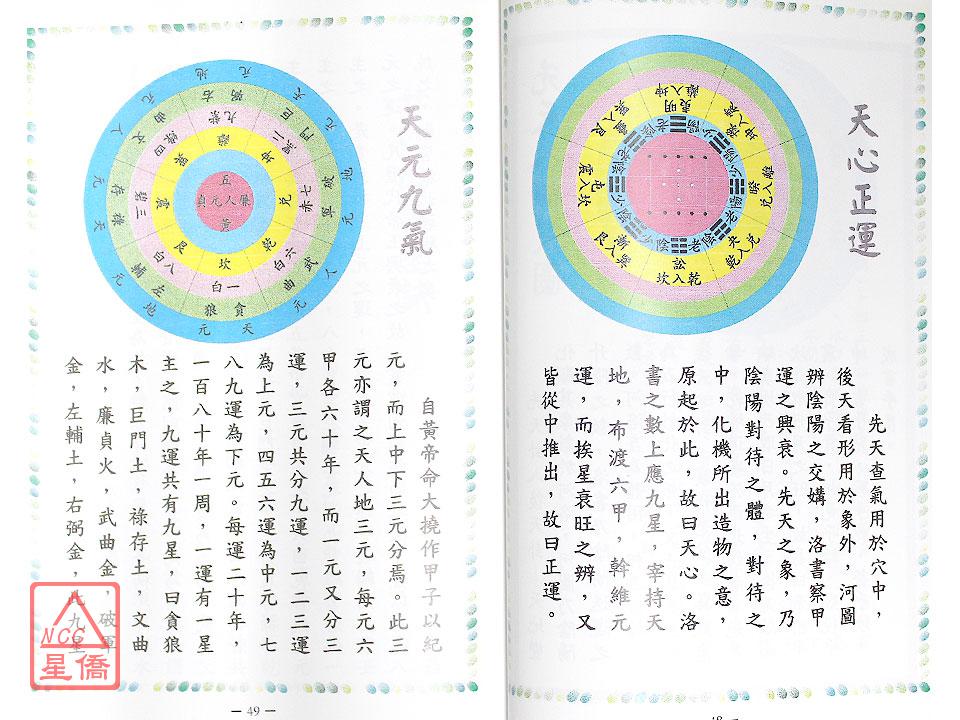 天心正運
先天查氣用於穴中，
後天看形用於象外，河圖
辨陰陽之交媾，洛書察甲
運之興衰。先天之象，乃
陰陽對待之體，對待之
中，化機所出造物之意，
原起於此，故曰天心。洛
書之數上應九星，宰持天
地，布渡六甲，幹維元
運，而挨星衰旺之辨，又
皆從中推出，故曰正運。
乾入坎
訟
兌入乾
夬
離入兌
睽
離入坤
明夷
震入坎
屯
老陰
老陽
少陰
少陽
天元九氣
自黃帝命大撓作甲子以紀
元，而上中下三元分焉。此三
元亦謂之天人地三元，每元六
甲各六十年，而一元又分三
運，三元共分九運，一二三運
為上元，四五六運為中元，七
八九運為下元。每運二十年，
一百八十年一周，一運有一星
主之，九運共有九星，曰貪狼
木，巨門土，祿存土，文曲
水，廉貞火，武曲金，破軍
金，左輔土，右弼金，此九星
五
廉人元貞
黃
離
坤
兌
乾
坎
艮
震
巽
九紫
二黑
七赤
六白
一白
八白
三碧
四綠
右弼
巨門
破軍
武曲
貪狼
左輔
祿存
文曲
地元
天元
地元
人元
天元
地元
天元
人元
NCC
星僑
— 49 —